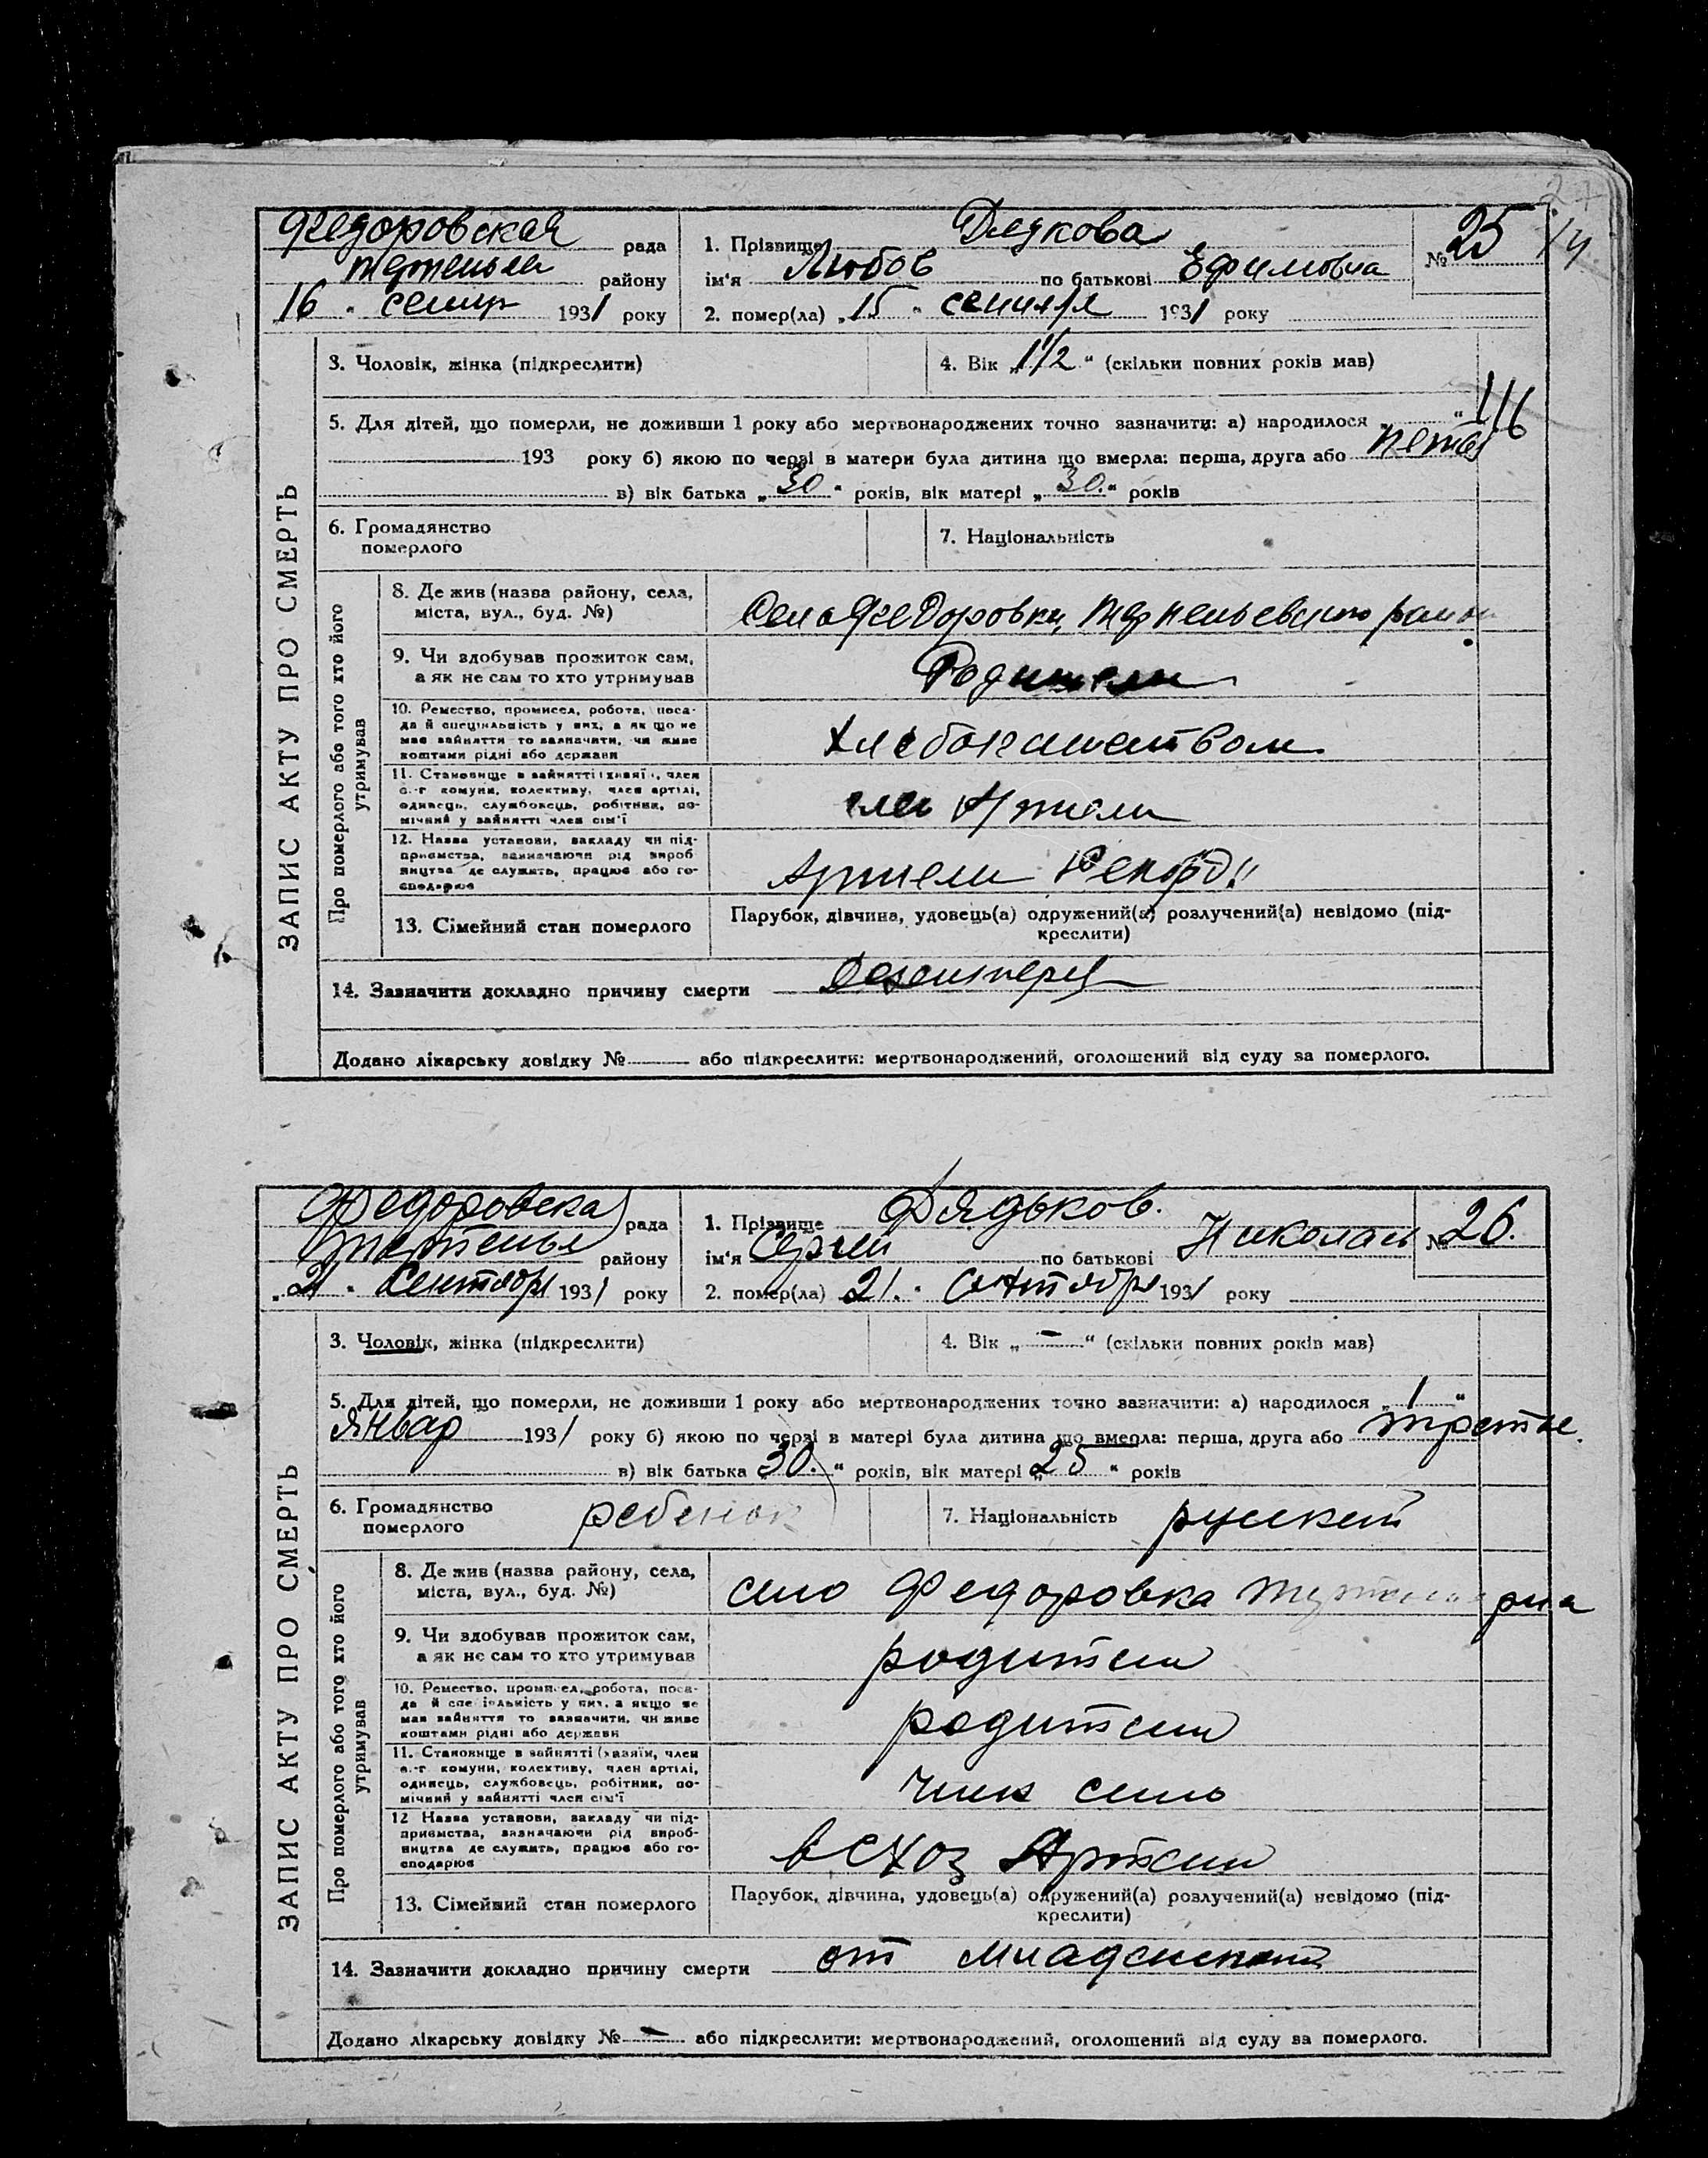 Федоровская рада
району
16 " сентр 1931 року
1. Прізвище Дядкова
ім'я Любов по батькові Ефимовна
№ 25
2. помер(ла) „15 " 1931 року
ЗАПИС АКТУ ПРО СМЕРТЬ
3. Чоловік, жінка (підкреслити)
4. Вік „1½" (скільки повних років мав)
5. Для дітей, що померли, не доживши 1 року або мертвонароджених точно зазначити: а) народилося „ "
1/6
193 року б) якою по черзі в матери була дитина що вмерла: перша, друга або
в) вік батька „30" років, вік матері „30." років
6. Громадянство
померлого
7. Національність
Про померлого або того хто його
утримував
8. Де жив (назва району, села,
міста, вул., буд. №)
Села Федоровки,
9. Чи здобував прожиток сам,
а як не сам то хто утримував
Родители
10. Ремество, промисел, робота, поса-
да й спеціяльність у них, а як що не
мав зайняття то зазначити, чи живе
коштами рідні або держави
Хлебопашеством
11. Становище в зайнятті (хазяїн, член
с.-г комуни, колективу, член артілі,
одинець, службовець, робітник, по-
мічний у зайнятті член сім'ї
член Артели
12. Назва установи, закладу чи під-
приємства, зазначаючи рід вироб
ництва де служить, працює або го-
сподарює
Артели Рекорд"
13. Сімейний стан померлого
Парубок, дівчина, удовець(а) одружений(а) розлучений(а) невідомо (під-
креслити)
14. Зазначити докладно причину смерти
Додано лікарську довідку № або підкреслити: мертвонароджений, оголошений від суду за померлого.
Федоровска рада
району
„21 " Сентября 1931 року
1. Прізвище Дядьков.
ім'я Сергей по батькові Николаев
№ 26.
2. помер(ла) 21. " Сентября 1931 року
ЗАПИС АКТУ ПРО СМЕРТЬ
3. Чоловік, жінка (підкреслити)
4. Вік „ – " (скільки повних років мав)
5. Для дітей, що померли, не доживши 1 року або мертвонароджених точно зазначити: а) народилося „ 1 "
Январ 1931 року б) якою по черзі в матері була дитина що вмерла: перша, друга або третье.
в) вік батька „30." років, вік матері „25" років
6. Громадянство
померлого
ребенок
7. Національність русский
Про померлого або того хто його
утримував
8. Де жив (назва району, села,
міста, вул., буд. №)
село Федоровка рна
9. Чи здобував прожиток сам,
а як не сам то хто утримував
родители
10. Ремество, промисел, робота, поса-
да й спеціяльність у них, а якщо не
мав зайняття то зазначити, чи живе
коштами рідні або держави
родители
11. Становище в зайнятті (хазяїн, член
с.-г комуни, колективу, член артілі,
одинець, службовець, робітник, по-
мічний у зайнятті член сім'ї
член
12 Назва установи, закладу чи під-
приємства, зазначаючи рід вироб-
ництва де служить, працює або го-
сподарює
в схоз Артели
13. Сімейний стан померлого
Парубок, дівчина, удовець(а) одружений(а) розлучений(а) невідомо (під-
креслити)
14. Зазначити докладно причину смерти от
Додано лікарську довідку № – або підкреслити: мертвонароджений, оголошений від суду за померлого.